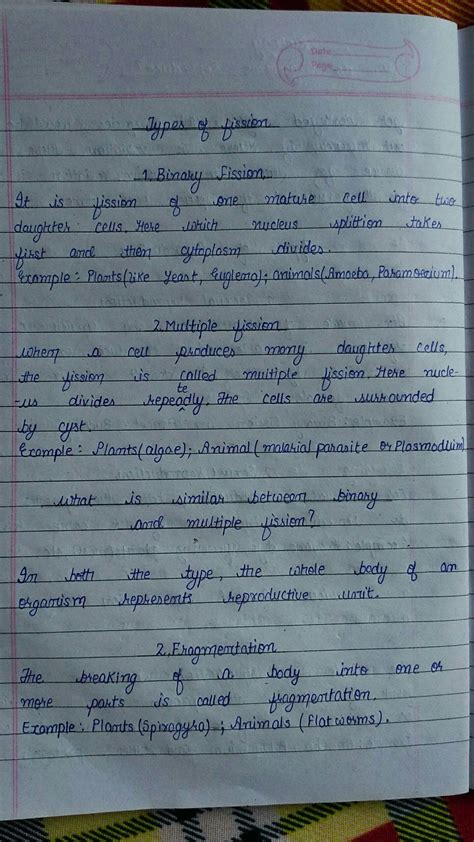 Date
Page
Types of fission
1. Binary Fission.
It is fission of one mature cell into two
daughter cells. Here which nucleus splittion takes
first and then cytoplasm divides.
Example : Plants(like Yeast, Euglena); animals(Amoeba, Paramoecium).
2. Multiple fission
When a cell produces many daughter cells,
the fission is called multiple fission. Here nucle-
-us divides repeatedly. The cells are surrounded
by cyst.
Example : Plants(algae); Animal (malarial parasite or Plasmodium)
What is similar between binary
and multiple fission?
In both the type, the whole body of an
organism represents reproductive unit.
2. Fragmentation
The breaking of a body into one or
more parts is called fragmentation.
Example : Plants(Spirogyra) ; Animals (Flatworms).